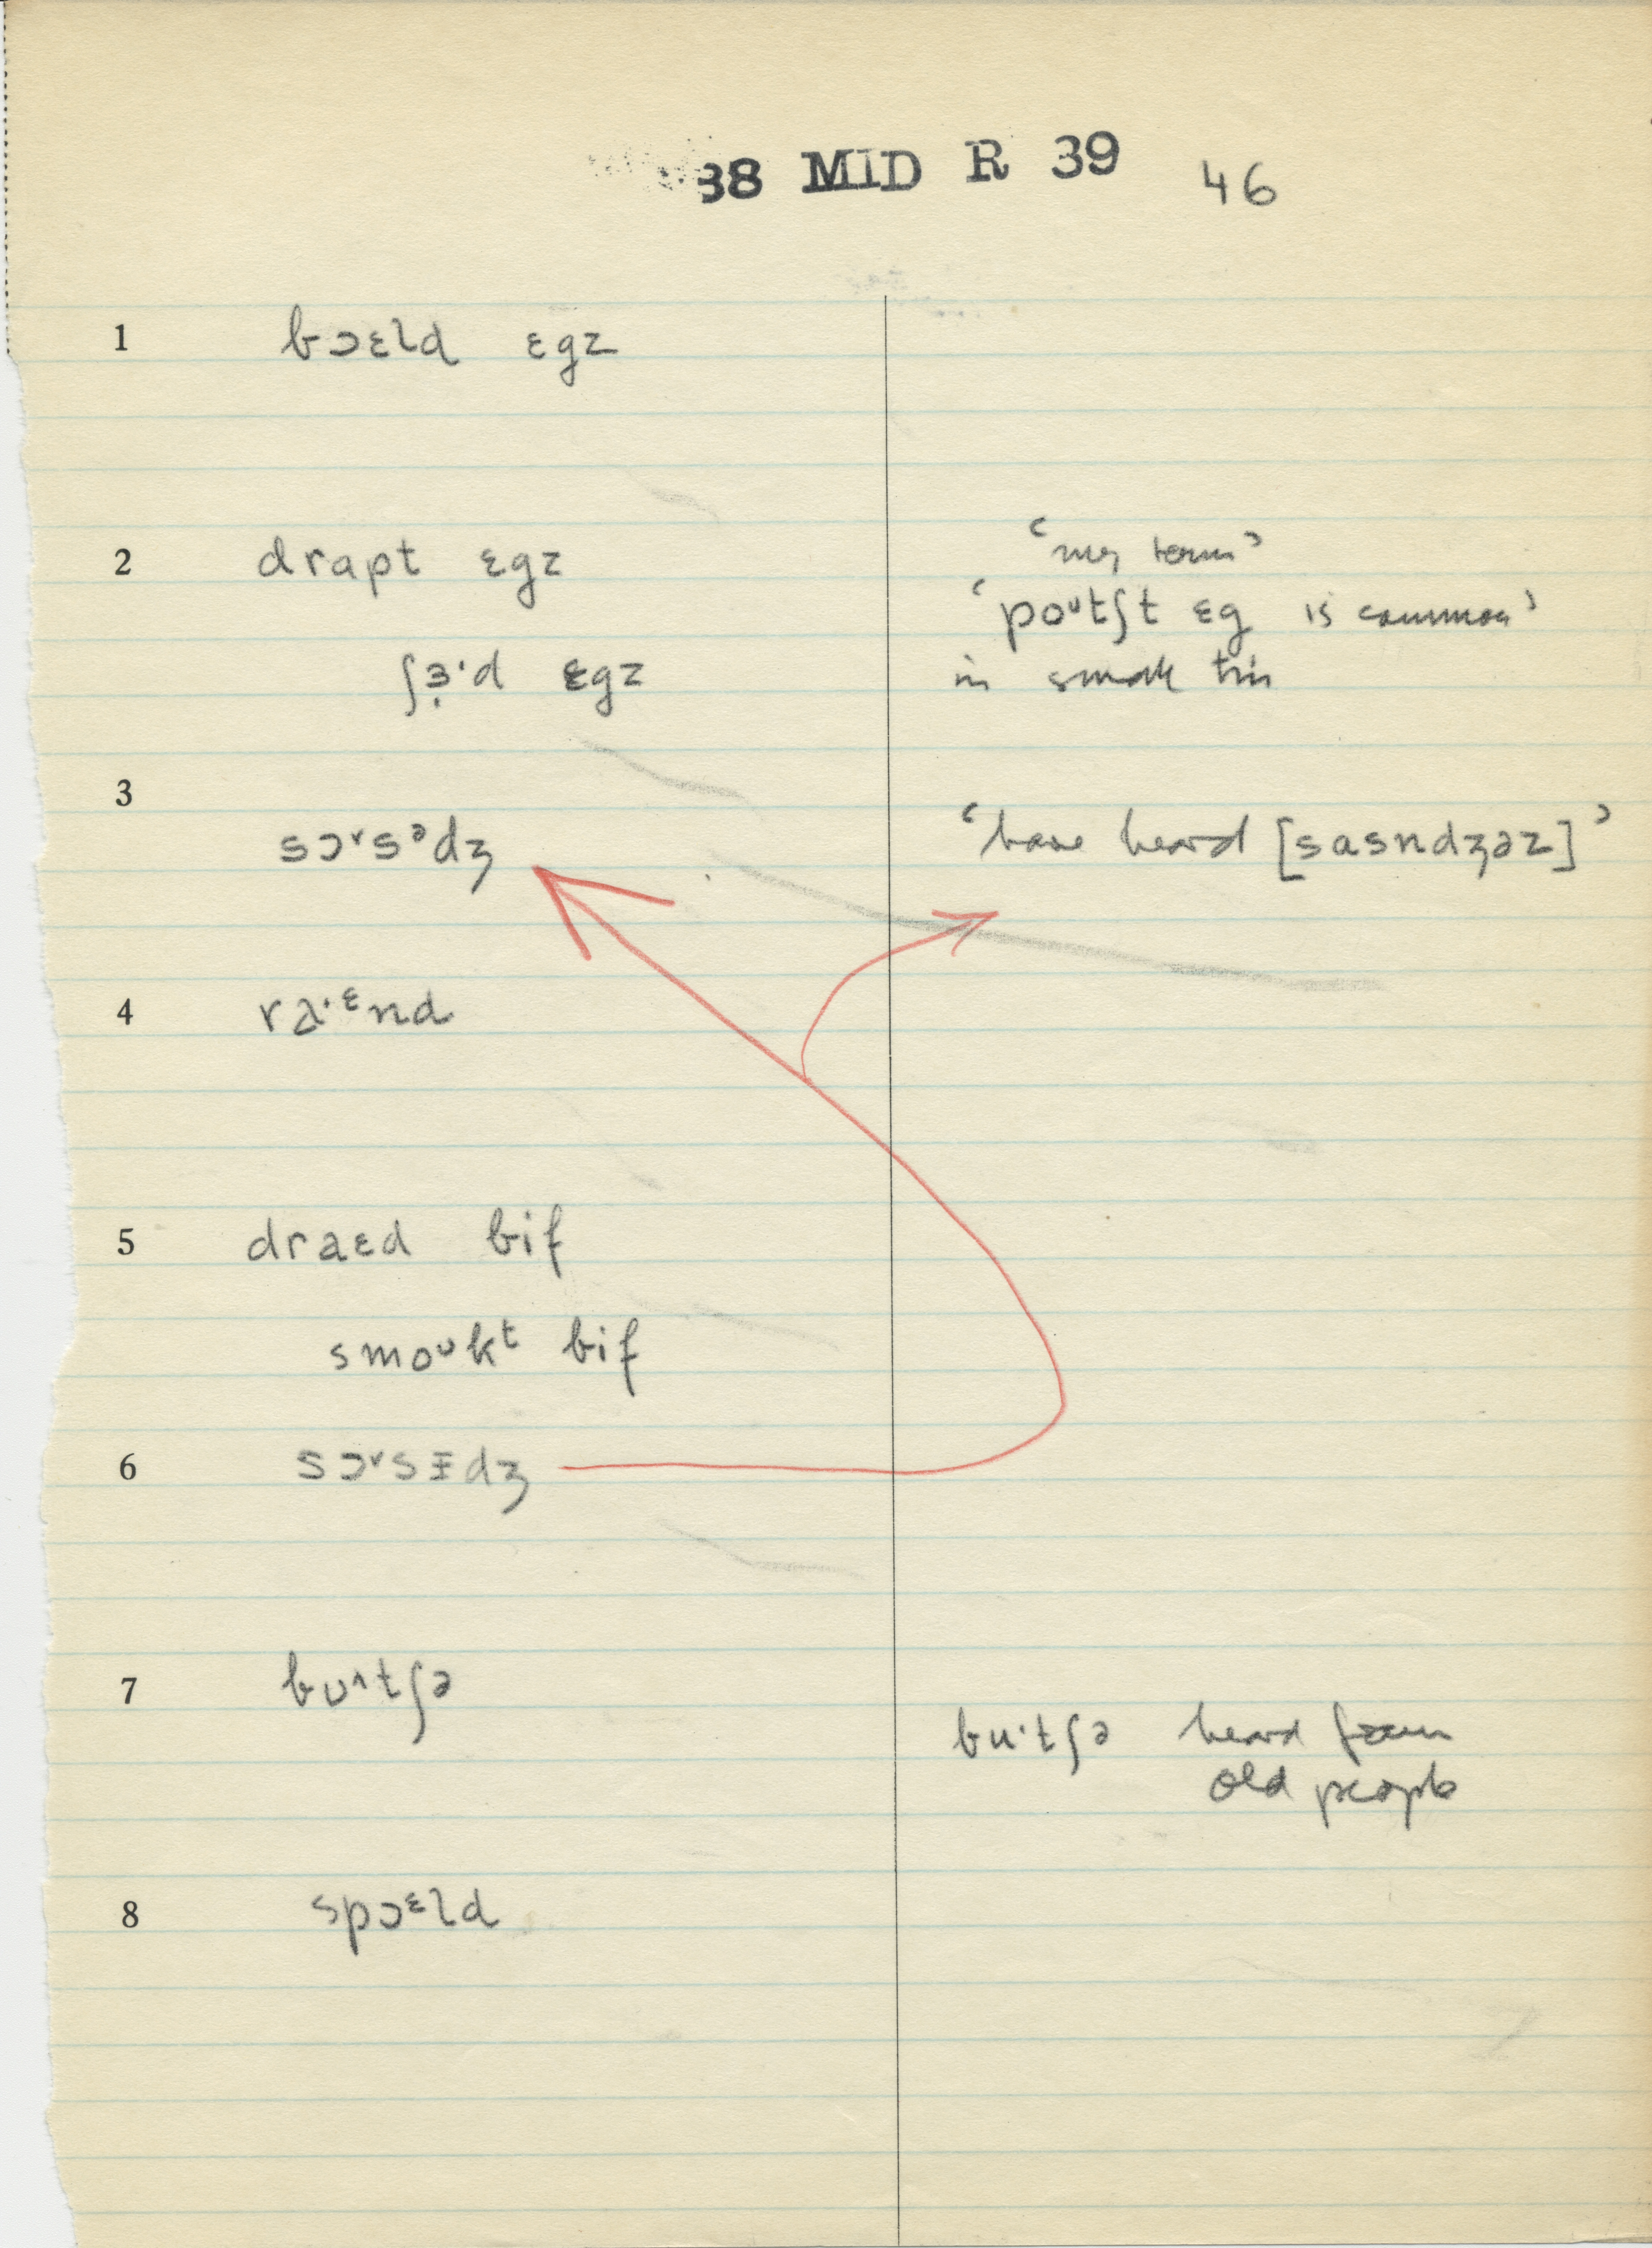 38 MID R 39 46
1 bɔɛld ɛgz
2 drapt ɛgz
‘my term’
‘poᶷtʃt ɛg is common’
ʃɜ̣·d ɛgz
in small tin
3
sɔ˅sᵊdʒ ‘have heard [sasndʒəz]’
4 ra·ᵋnd
5 draɛd bif
smoᶷkᵗ bif
6 sɔ˅sɪdʒ
7 bʊ^tʃə
bu·tʃə heard from
old people
8 spɔᵋld